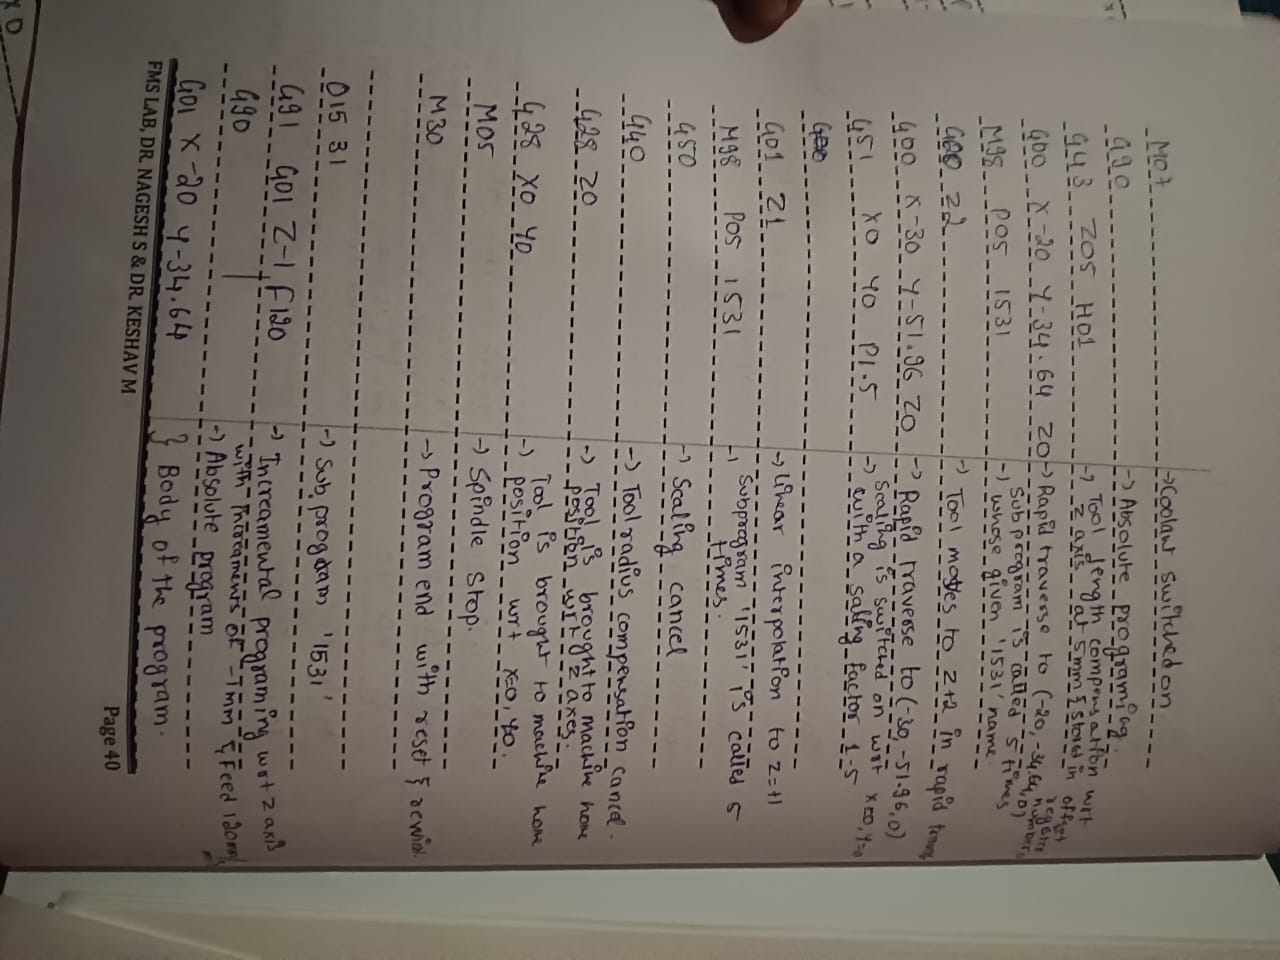 M07 → Coolant switched on
G90 → Absolute programing.
G43 Z05 H01 → Tool length compensation wrt
Z axis at 5mm & stored in offset
register number.
G00 X-20 Y-34.64 Z0 → Rapid traverse to (-20, -34.64, 0)
M98 P05 1531 → Subprogram is called 5 times
whose given '1531' name.
G00 Z2 → Tool moves to Z+2 in rapid
G00 X-30 Y-51.96 Z0 → Rapid traverse to (-30, -51.96, 0)
G51 X0 Y0 P1.5 → Scaling is switched on wrt X=0, Y=0
with a saling factor 1.5
G00
G01 Z1 → Linear interpolation to Z=+1
M98 P05 1531 → Subprogram '1531' is called 5
times.
G50 → Scaling cancel
G40 → Tool radius compensation cancel.
G28 Z0 → Tool is brought to machine home
position wrt Z axes.
G28 X0 Y0 → Tool is brought to machine home
position wrt X=0, Y0.
M05 → Spindle stop.
M30 → Program end with reset & rewind.
O15 31 → Sub program '1531'
G91 G01 Z-1 F120 → Increamental programing wrt Z axis
with increaments of -1mm & Feed 120mm/
G90 → Absolute program
G01 X-20 Y-34.64 } Body of the program.
FMS LAB, DR. NAGESH S & DR. KESHAV M
Page 40
X0